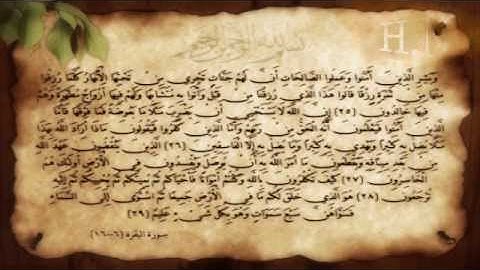 بسم الله الرحمن الرحيم
وبشر الذين آمنوا وعملوا الصالحات أن لهم جنات تجري من تحتها الأنهار كلما رزقوا
منها من ثمرة رزقا قالوا هذا الذي رزقنا من قبل وأتوا به متشابها ولهم فيها أزواج مطهرة وهم
فيها خالدون (٢٥) إن الله لا يستحيي أن يضرب مثلا ما بعوضة فما فوقها فأما
الذين آمنوا فيعلمون أنه الحق من ربهم وأما الذين كفروا فيقولون ماذا أراد الله بهذا
مثلا يضل به كثيرا ويهدي به كثيرا وما يضل به إلا الفاسقين (٢٦) الذين ينقضون عهد الله
من بعد ميثاقه ويقطعون ما أمر الله به أن يوصل ويفسدون في الأرض أولئك هم
الخاسرون (٢٧) كيف تكفرون بالله وكنتم أمواتا فأحياكم ثم يميتكم ثم يحييكم ثم إليه
ترجعون (٢٨) هو الذي خلق لكم ما في الأرض جميعا ثم استوى إلى السماء
فسواهن سبع سموات وهو بكل شيء عليم (٢٩)
سورة البقرة